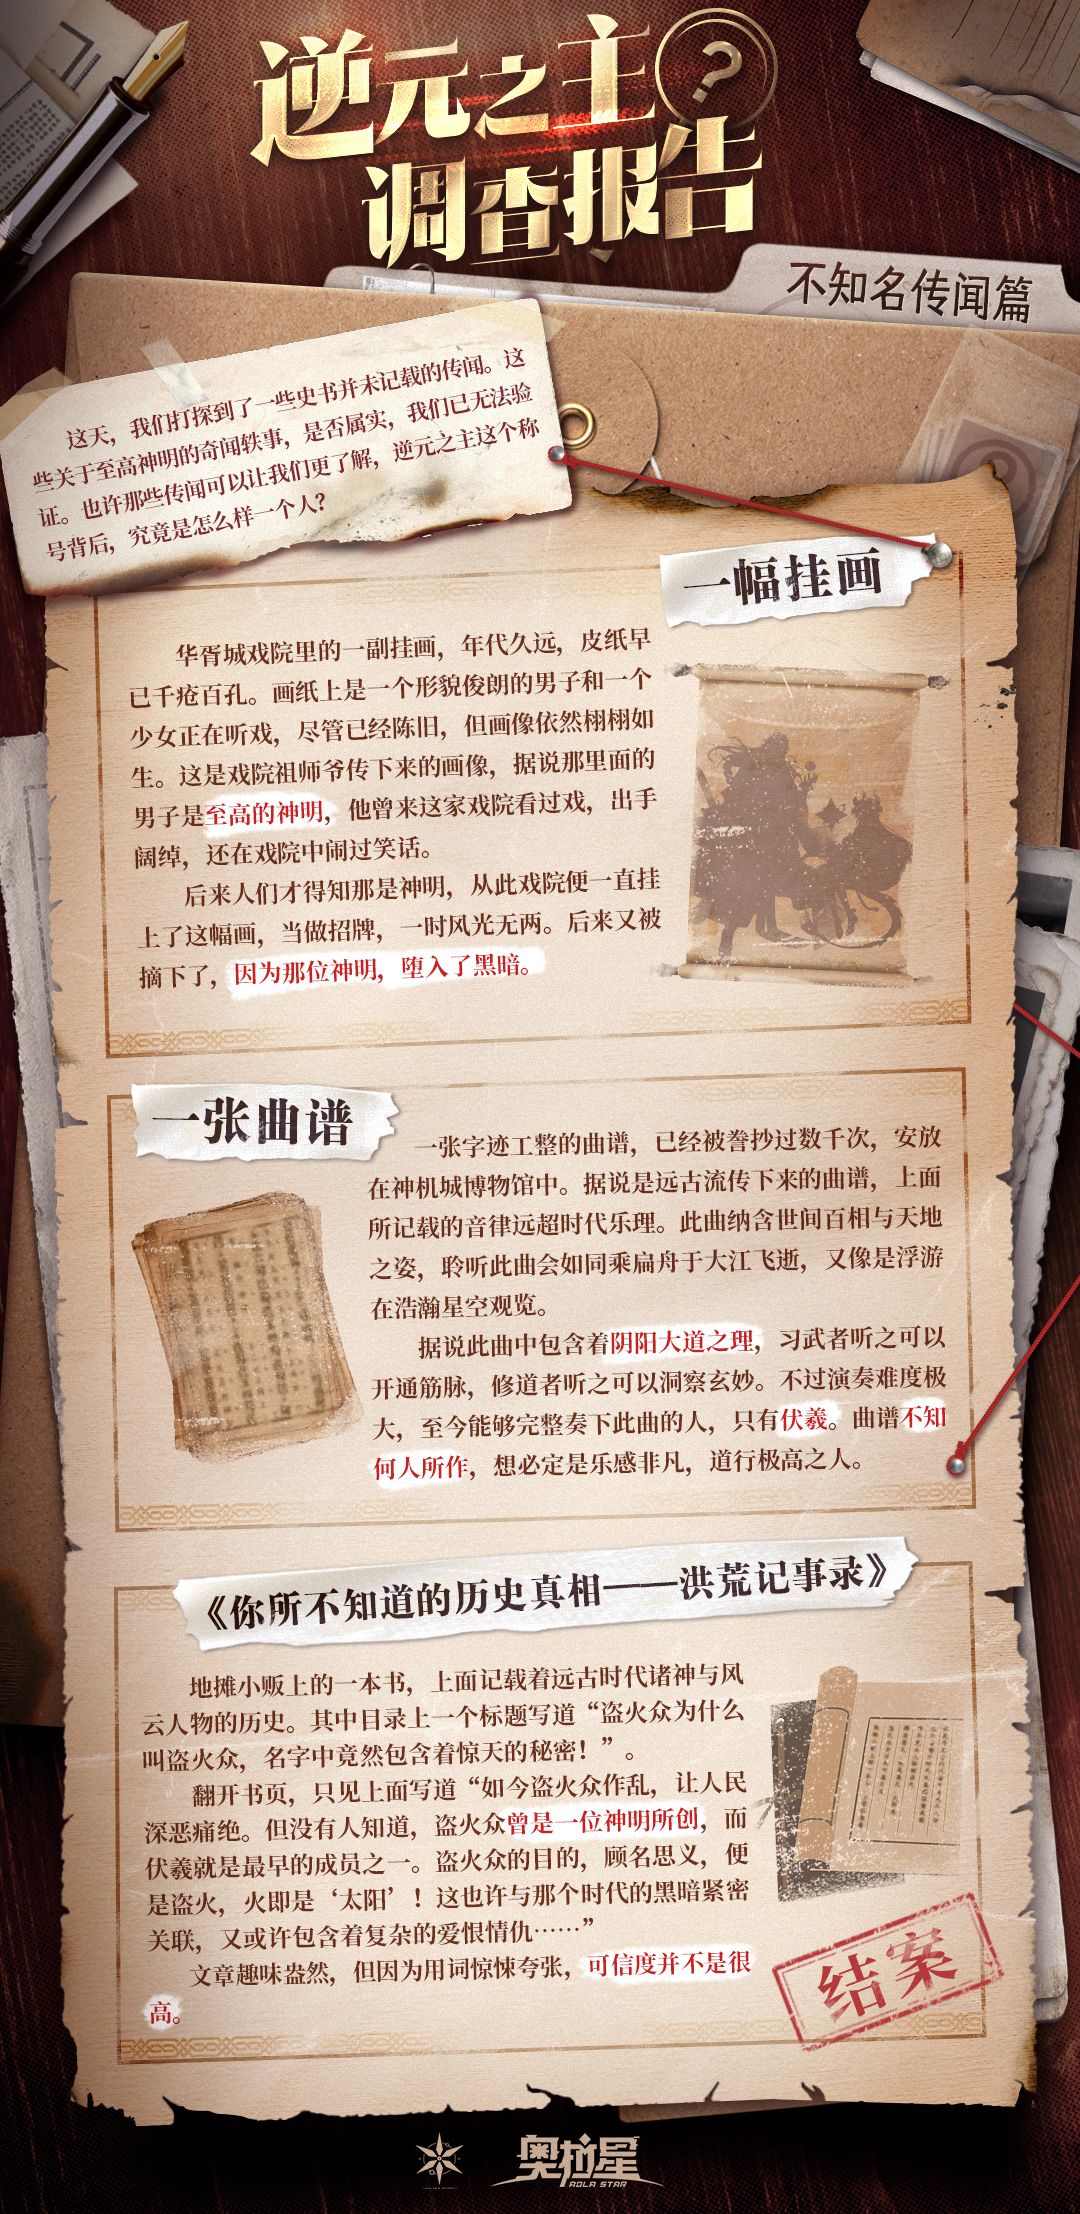 逆元之主
?
调查报告
不知名传闻篇
这天，我们打探到了一些史书并未记载的传闻。这
些关于至高神明的奇闻轶事，是否属实，我们已无法验
证。也许那些传闻可以让我们更了解，逆元之主这个称
号背后，究竟是怎么样一个人？
一幅挂画
华胥城戏院里的一副挂画，年代久远，皮纸早
已千疮百孔。画纸上是一个形貌俊朗的男子和一个
少女正在听戏，尽管已经陈旧，但画像依然栩栩如
生。这是戏院祖师爷传下来的画像，据说那里面的
男子是至高的神明，他曾来这家戏院看过戏，出手
阔绰，还在戏院中闹过笑话。
后来人们才得知那是神明，从此戏院便一直挂
上了这幅画，当做招牌，一时风光无两。后来又被
摘下了，因为那位神明，堕入了黑暗。
一张曲谱
一张字迹工整的曲谱，已经被誊抄过数千次，安放
在神机城博物馆中。据说是远古流传下来的曲谱，上面
所记载的音律远超时代乐理。此曲纳含世间百相与天地
之姿，聆听此曲会如同乘扁舟于大江飞逝，又像是浮游
在浩瀚星空观览。
据说此曲中包含着阴阳大道之理，习武者听之可以
开通筋脉，修道者听之可以洞察玄妙。不过演奏难度极
大，至今能够完整奏下此曲的人，只有伏羲。曲谱不知
何人所作，想必定是乐感非凡，道行极高之人。
《你所不知道的历史真相——洪荒记事录》
地摊小贩上的一本书，上面记载着远古时代诸神与风
云人物的历史。其中目录上一个标题写道“盗火众为什么
叫盗火众，名字中竟然包含着惊天的秘密！”。
翻开书页，只见上面写道“如今盗火众作乱，让人民
深恶痛绝。但没有人知道，盗火众曾是一位神明所创，而
伏羲就是最早的成员之一。盗火众的目的，顾名思义，便
是盗火，火即是‘太阳’！这也许与那个时代的黑暗紧密
关联，又或许包含着复杂的爱恨情仇……”
文章趣味盎然，但因为用词惊悚夸张，可信度并不是很
高。
结案
奥拉星
AOLA STAR